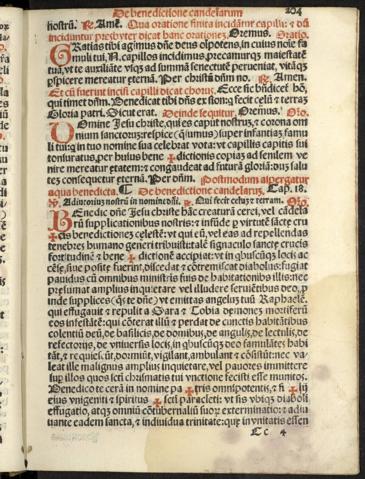 De benedictione candelarum 204
nostrū. ℟. Amē. Qua oratione finita incidātur capilli: & dū
inciduntur presbyter dicat hanc orationez. Oremus. Oratio.
GRatias tibi agimus dñe deus oīpotens, in cuius noīe fa
muli tui, N. capillos incidimus, precamurq́; maiestatē
tuā, vt te auxiliāte vsq́; ad summā senectutē perueniat, vitāq́;
p̱spicere mercatur eternā. Per christū dñm no. ℟. Amen.
Et cū fuerint incisi capilli dicat chorus. Ecce sic bñdicet hō,
qui timet dñm. Benedicat tibi dñs ex sion: q̄ fecit celū & terraz
Gloria patri. Sicut erat. Deinde sequitur. Oremus. Oro.
DOmine Jesu christe, qui es caput nostrū, & corona om
nium sanctoruz: respice (q̄sumus) super infantiaz famu
li tui: q̄ in tuo nomine sua celebrat vota: vt capillis capitis sui
tonsuratus, per huius bene ✠ dictionis copias ad senilem ve
nire mereatur etatem: & congaudeat ad futurā gloriā: duz salu
tes consequetur eternā. Per dñm. Postmodum aspergatur
aqua benedicta. ¶ De benedictione candelaruz, Cap. 18.
℣. Adiutoriuȝ nostrū in nomine dñi. ℟. Qui fecit celuȝ & terram. Oro.
BEnedic dñe Jesu christe hāc creaturā cerei, vel cādela
rū supplicationibus nostris: & infūde p̱ virtutē sācte cru
✠ cis benedictionēs celestē: vt qui eū, vel eas ad repellendas
tenebras humano generi tribuisti: tale signaculo sancte crucis
fortitudinē & bene ✠ dictionē accipiat: vt in q̄buscūq́; locis ac
cēse, siue posite fuerint, discedat & cōtremiscat diabolus: fugiat
pauidus cū omnibus ministris suis de habitationibus illis: nec
p̱sumat amplius inquietare vel illudere seruiētibus deo, p̱
inde supplices (q̄s te dñe) vt emittas angeluz tuū Raphaelē,
qui effugauit & repulit a Sara & Tobia demones mortiferū
eos infestātē: qui cōterat illū & perdat de cunctis habitatibus
colentiū deū, de basilicis, de domibus, de angulis, de lectulis, de
refectorijs, de vniuersis locis, in q̄buscūq́; deo famulātes habi
tāt, & requiescūt, dormiūt, vigilant, ambulant & cōsistūt: nec va
leat ille malignus amplius inquietare, vel pauores immittere
sup̱ illos quos scti chrismatis tui vnctione fecisti esse munitos.
Benedico te cera in nomine pa ✠ tris omnipotentis, & fi ✠ lij
eius vnigeniti & spiritus ✠ scti paracleti: vt sis vbiq́; diaboli
effugatio, atq́; omniū cōtubernaliū suoȝ exterminatio: adiu
uante eadem sancta, & indiuidua trinitate: que in vnitatis essen
Cc 4